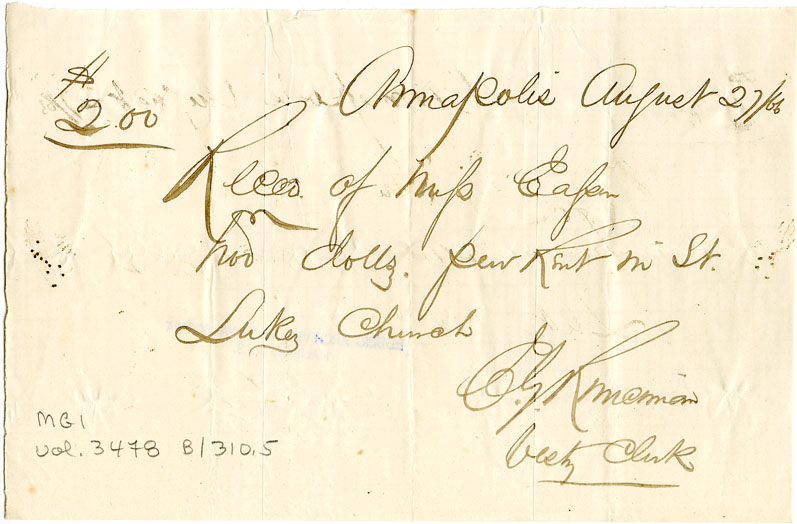 $
2.00
Annapolis August 27/66
Recd. of Miss Eagan
two dolls. pew Rent in St.
Lukes Church
E. G.
Vesty Clerk
MG1
vol. 3478 B/310.5